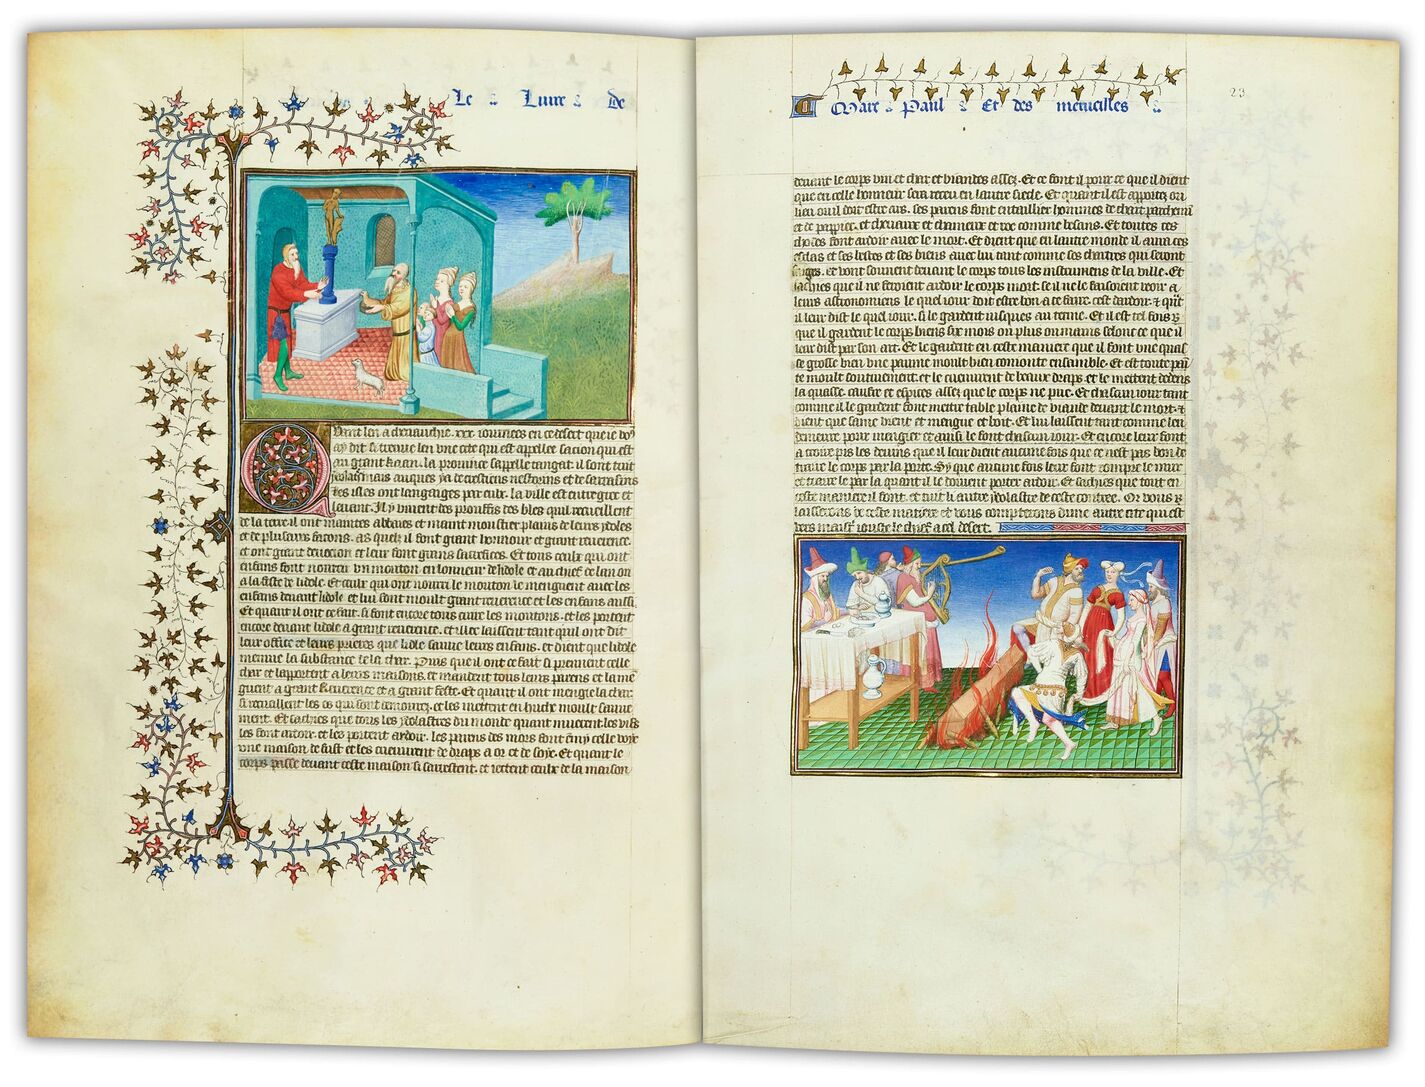 Le Liure De
Quant len a cheuauchie .xxx. iournees en ce desert que ie vo9
ay dit si treuue len vne cite qui est appellee sacion qui est
au grant kaan. la prouince sappelle tangut. il sont tuit
ydolastres mais auques ya de crestiens nestorins et de sarrasins
les ydres ont langaiges par eulx. la ville est entre grec et
leuant. Il y viuent des prouffis des bles quil recueillent
de la terre il ont maintes abbaies et maint moustier plains de leurs ydoles
et de plusieurs facons. as quelz il font grant honnour et grant reuerence.
et ont grant deuocion et leur font grans sacrefices. Et tous ceulx qui ont
enfans font nourrir vn mouton en lonneur de lidole et au chief de lan ou
a la feste de lidole. Et ceulx qui ont nourri le mouton le menguent auec les
enfans deuant lidole et lui font moult grant reuerence et les enfans aussi.
Et quant il ont ce fait. si font encore tous cuire les moutons. et les portent
encore deuant lidole a grant reuerence. et illec laissent tant quil ont dit
leur office et leurs prieres que lidole sauue leurs enfans. et dient que lidole
mengue la substance de la char. Puis que il ont ce fait il prennent celle
char et lapportent a leurs maisons. et mandent tous leurs parens et la men
guent a grant Reuerence et a grant feste. Et quant il ont mengie la char
si recueillent les os qui sont demourez. et les mettent en huche moult sauue
ment. Et sachies que tous les ydolastres du monde quant muerent les vifs
les font ardoir. et les portent ardoir. les parens des mors font emy celle voye
vne maison de fust et les cueuurent de draps a or et de soye. Et quant le
corps passe deuant ceste maison si sarrestent. et iettent ceulx de la maison
23
Marc Paul Et des merueilles
deuant le corps vin et char et viandes assez. Et ce font il pour ce que il dient
que en celle honneur sera receu en lautre siecle. Et quant il est apportez ou
lieu ou il doit estre ars. ses parens font entaillier hommes de chartre parchemin
et de pappier. et cheuaux et chameux et roe comme besans. Et toutes ces
choses font ardoir auec le mort. Et dient que en lautre monde il aura ces
esclas et ses bestes et ses biens auec lui tant comme ses chartres qui seront
arges. et vont sonnent deuant le corps tous les instrumens de la ville. Et
saches que il ne feroient ardoir le corps mort. se il ne le faisoient veoir a
leurs astronomiens le quel iour doit estre bon a ce faire. cest dardoir. et quant
il leur dist le quel iour. si le gardent iusques au terme. Et il est tel fois
que il gardent le corps biens six mois ou plus ou mains selonc ce que il
leur dist par son art. Et le gardent en ceste maniere que il font vne quas
se grosse bien vne paume moult bien coniointe ensamble. Et est toute pain
te moult soutiuement. et le cueuurent de beaux draps. et le mettent dedens
la quasse. canfre et espices assez que le corps ne pue. Et chascun iour tant
comme il le gardent font mettre table plaine de viande deuant le mort. et
dient que same vient et mengue et boit. Et lui laissent tant comme len
demeure pour mengier et ainsi le font chascun iour. Et encore leur font
a croire pis les deuins. que il leur dient aucune fois que ce nest pas bon de
traire le corps par la porte. Sy que aucune fois leur font rompre le mur
et traire le par la quant il le doiuent porter ardoir. Et saches que tout en
ceste maniere il font. et tuit li autre ydolastre de ceste contree. Or vous
lairons de ceste matiere et vous compterons dune autre cite qui est
vers maistre iouste le chief a cel desert.